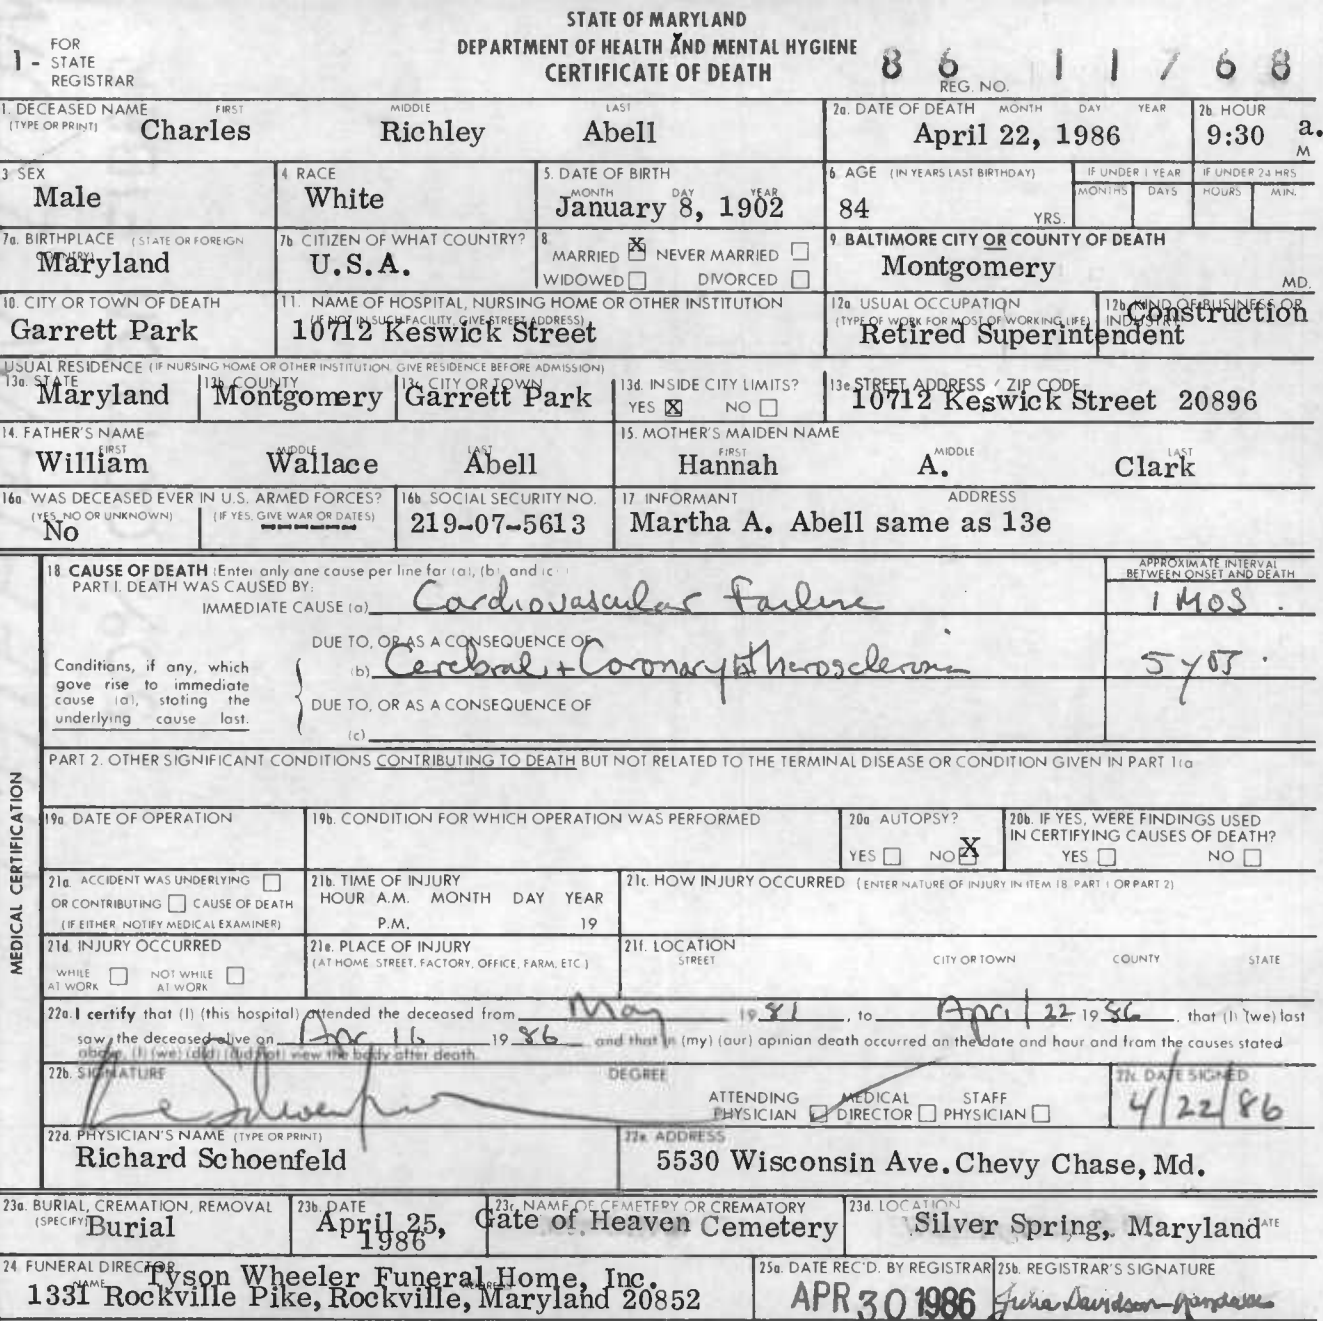 STATE OF MARYLAND
DEPARTMENT OF HEALTH AND MENTAL HYGIENE
CERTIFICATE OF DEATH
1 - FOR STATE REGISTRAR
86 11768
REG. NO.
1. DECEASED NAME (TYPE OR PRINT) FIRST MIDDLE LAST
Charles Richley Abell
2a. DATE OF DEATH MONTH DAY YEAR
April 22, 1986
2b. HOUR
9:30 a. M
3 SEX
Male
4 RACE
White
5. DATE OF BIRTH MONTH DAY YEAR
January 8, 1902
6 AGE (IN YEARS LAST BIRTHDAY)
84 YRS.
IF UNDER 1 YEAR MONTHS DAYS
IF UNDER 24 HRS HOURS MIN.
7a. BIRTHPLACE (STATE OR FOREIGN
Maryland
7b. CITIZEN OF WHAT COUNTRY?
U.S.A.
8 MARRIED X NEVER MARRIED
WIDOWED DIVORCED
9. BALTIMORE CITY OR COUNTY OF DEATH
Montgomery MD.
10. CITY OR TOWN OF DEATH
Garrett Park
11. NAME OF HOSPITAL, NURSING HOME OR OTHER INSTITUTION
(IF NOT IN SUCH FACILITY, GIVE STREET ADDRESS)
10712 Keswick Street
12a USUAL OCCUPATION
(TYPE OF WORK FOR MOST OF WORKING LIFE)
Retired Superintendent
12b. KIND OF BUSINESS OR INDUSTRY
Construction
USUAL RESIDENCE (IF NURSING HOME OR OTHER INSTITUTION GIVE RESIDENCE BEFORE ADMISSION)
13a. STATE
Maryland
13b. COUNTY
Montgomery
13c. CITY OR TOWN
Garrett Park
13d. INSIDE CITY LIMITS?
YES X NO
13e STREET ADDRESS / ZIP CODE
10712 Keswick Street 20896
14. FATHER'S NAME FIRST MIDDLE LAST
William Wallace Abell
15. MOTHER'S MAIDEN NAME FIRST MIDDLE LAST
Hannah A. Clark
16a WAS DECEASED EVER IN U.S. ARMED FORCES?
(YES, NO OR UNKNOWN) (IF YES, GIVE WAR OR DATES)
No -------
16b SOCIAL SECURITY NO.
219-07-5613
17 INFORMANT ADDRESS
Martha A. Abell same as 13e
MEDICAL CERTIFICATION
18 CAUSE OF DEATH (Enter only one cause per line for (a), (b), and (c)
PART I. DEATH WAS CAUSED BY:
APPROXIMATE INTERVAL BETWEEN ONSET AND DEATH
IMMEDIATE CAUSE (a) Cardiovascular Failure 1 MOS.
DUE TO, OR AS A CONSEQUENCE OF
(b) Cerebral + Coronary Atherosclerosis 5 yrs.
Conditions, if any, which gave rise to immediate cause (a), stating the underlying cause last.
DUE TO, OR AS A CONSEQUENCE OF
(c)
PART 2. OTHER SIGNIFICANT CONDITIONS CONTRIBUTING TO DEATH BUT NOT RELATED TO THE TERMINAL DISEASE OR CONDITION GIVEN IN PART 1(a
19a DATE OF OPERATION
19b. CONDITION FOR WHICH OPERATION WAS PERFORMED
20a AUTOPSY?
YES NO X
20b. IF YES, WERE FINDINGS USED IN CERTIFYING CAUSES OF DEATH?
YES NO
21a. ACCIDENT WAS UNDERLYING
OR CONTRIBUTING CAUSE OF DEATH
(IF EITHER NOTIFY MEDICAL EXAMINER)
21b. TIME OF INJURY
HOUR A.M. MONTH DAY YEAR
P.M. 19
21c. HOW INJURY OCCURRED (ENTER NATURE OF INJURY IN ITEM 18 PART 1 OR PART 2)
21d INJURY OCCURRED
WHILE AT WORK NOT WHILE AT WORK
21e. PLACE OF INJURY
(AT HOME STREET, FACTORY, OFFICE, FARM, ETC.)
21f. LOCATION
STREET CITY OR TOWN COUNTY STATE
22a. I certify that (I) (this hospital) attended the deceased from May 19 81, to April 22 19 86 that (I) (we) last
saw the deceased alive on Apr 16 19 86 and that in (my) (our) opinion death occurred on the date and hour and from the causes stated
above, (I) (we) (did) (did not) view the body after death.
22b. SIGNATURE DEGREE
ATTENDING PHYSICIAN MEDICAL DIRECTOR STAFF PHYSICIAN
22c. DATE SIGNED
4/22/86
22d. PHYSICIAN'S NAME (TYPE OR PRINT)
Richard Schoenfeld
22e. ADDRESS
5530 Wisconsin Ave. Chevy Chase, Md.
23a. BURIAL, CREMATION, REMOVAL (SPECIFY)
Burial
23b. DATE
April 25, 1986
23c. NAME OF CEMETERY OR CREMATORY
Gate of Heaven Cemetery
23d. LOCATION
Silver Spring, Maryland
24 FUNERAL DIRECTOR NAME
Tyson Wheeler Funeral Home, Inc.
1331 Rockville Pike, Rockville, Maryland 20852
25a. DATE REC'D. BY REGISTRAR
APR 30 1986
25b. REGISTRAR'S SIGNATURE
Julia Davidson-Randall